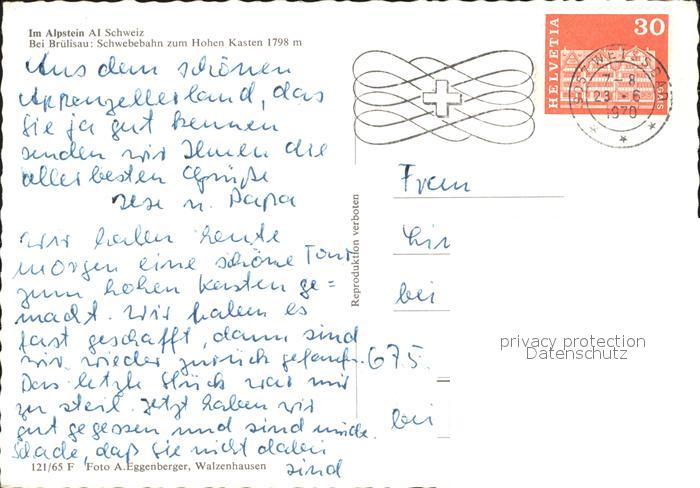 Im Alpstein AI Schweiz
Bei Brülisau: Schwebebahn zum Hohen Kasten 1798 m
Aus dem schönen
Appenzellerland, das
Sie ja gut kennen
senden wir Ihnen die
allerbesten Grüße
u. Papa
Wir haben heute
morgen eine schöne Tour
zum hohen Kasten ge=
macht. Wir haben es
fast geschafft, dann sind
wir wieder zurück gelauf.
Das letzte Stück war mir
zu steil. Jetzt haben wir
gut gegessen und sind müde.
Schade, daß Sie nicht dabei
sind
121/65 F Foto A. Eggenberger, Walzenhausen
Reproduktion verboten
HELVETIA
30
7-8
23.-6.
1970
Frau
bei
675
bei
privacy protection
Datenschutz